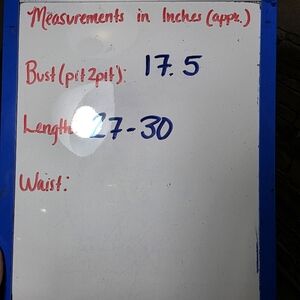 Measurements in Inches (appx.)
Bust (pit2pit): 17.5
Length: 27-30
Waist: